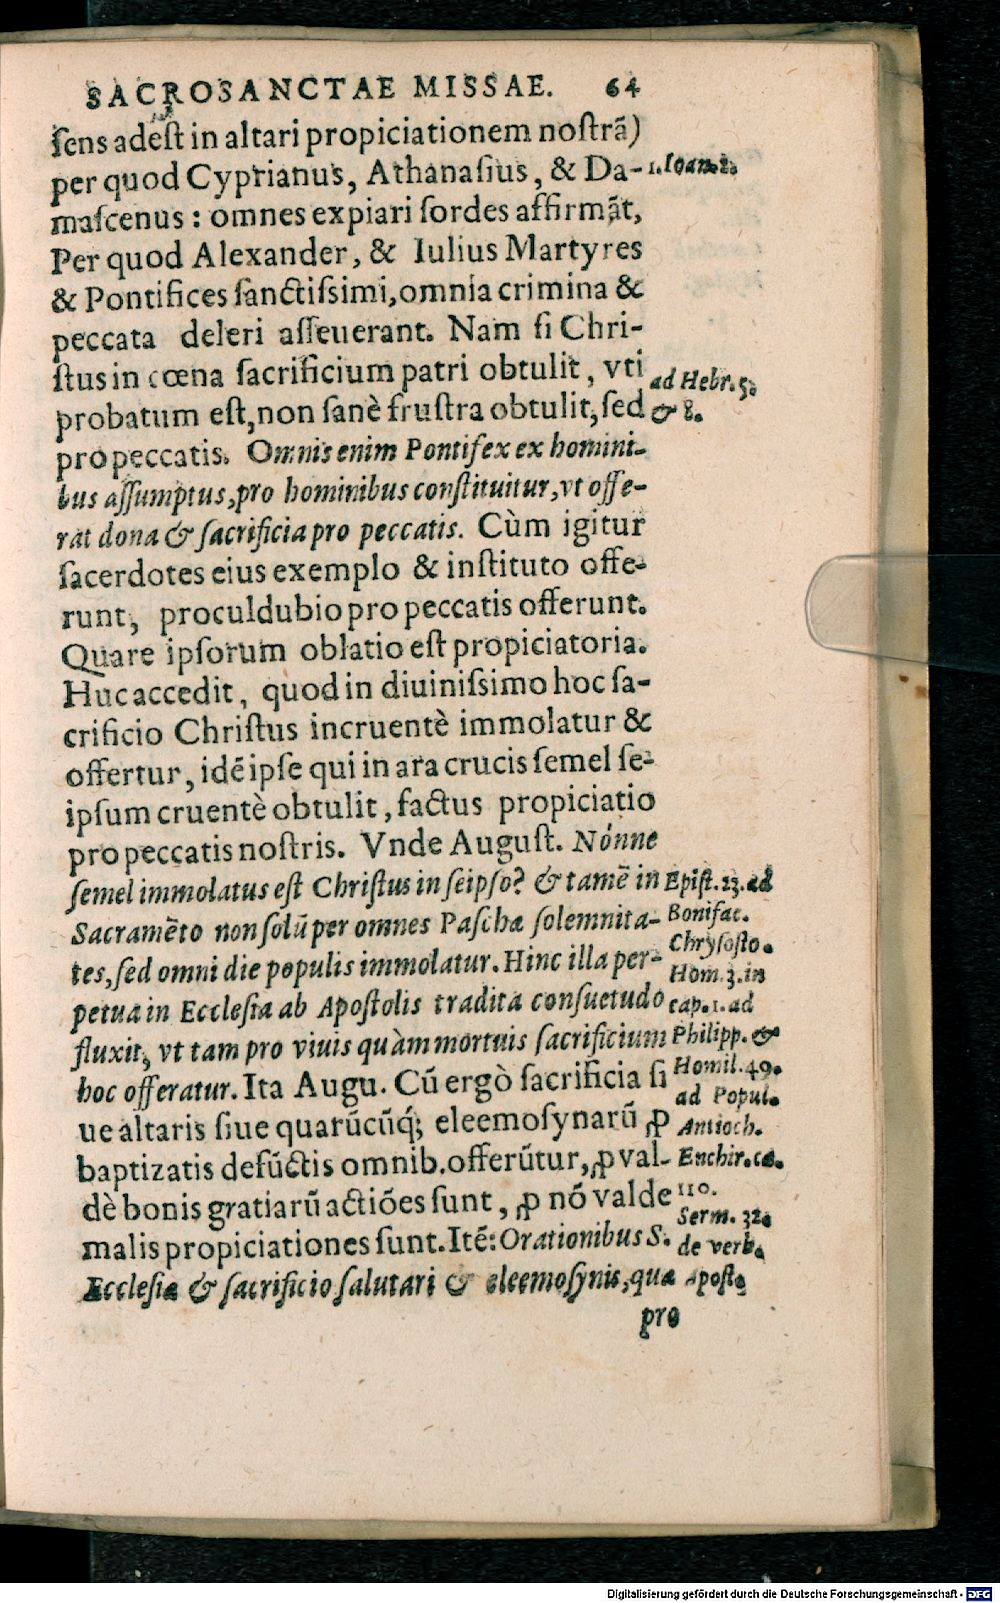 SACROSANCTAE MISSAE. 64
ſens adeſt in altari propiciationem noſtrã)
per quod Cyprianus, Athanaſius, & Da-
maſcenus: omnes expiari ſordes affirmãt,
Per quod Alexander, & Iulius Martyres
& Pontifices ſanctiſsimi, omnia crimina &
peccata deleri aſſeuerant. Nam ſi Chri-
ſtus in cœna ſacrificium patri obtulit, vti
probatum eſt, non ſanè fruſtra obtulit, ſed
pro peccatis. Omnis enim Pontifex ex homini-
bus aſſumptus, pro hominibus conſtituitur, vt offe-
rat dona & ſacrificia pro peccatis. Cùm igitur
ſacerdotes eius exemplo & inſtituto offe-
runt, proculdubio pro peccatis offerunt.
Quare ipſorum oblatio eſt propiciatoria.
Huc accedit, quod in diuiniſsimo hoc ſa-
crificio Chriſtus incruentè immolatur &
offertur, idẽ ipſe qui in ara crucis ſemel ſe-
ipſum cruentè obtulit, factus propiciatio
pro peccatis noſtris. Vnde Auguſt. Nónne
ſemel immolatus eſt Chriſtus in ſeipſo? & tamẽ in
Sacramẽto non ſolũ per omnes Paſchæ ſolemnita-
tes, ſed omni die populis immolatur. Hinc illa per-
petua in Eccleſia ab Apoſtolis tradita conſuetudo
fluxit, vt tam pro viuis quàm mortuis ſacrificium
hoc offeratur. Ita Augu. Cũ ergò ſacrificia ſi
ue altaris ſiue quarũcũq́; eleemoſynarũ ꝓ
baptizatis defũctis omnib. offerũtur, ꝓ val-
dè bonis gratiarũ actiões ſunt, ꝓ nõ valde
malis propiciationes ſunt. Itẽ: Orationibus S.
Eccleſiæ & ſacrificio ſalutari & eleemoſynis, quæ
pro
1. Ioan. 2.
ad Hebr. 5.
& 8.
Epiſt. 23. ad
Bonifac.
Chryſoſto.
Hom. 3. in
cap. 1. ad
Philipp. &
Homil. 49.
ad Popul.
Antioch.
Enchir. ca.
110.
Serm. 32.
de verb.
Apoſt.
Digitalisierung gefördert durch die Deutsche Forschungsgemeinschaft - DFG